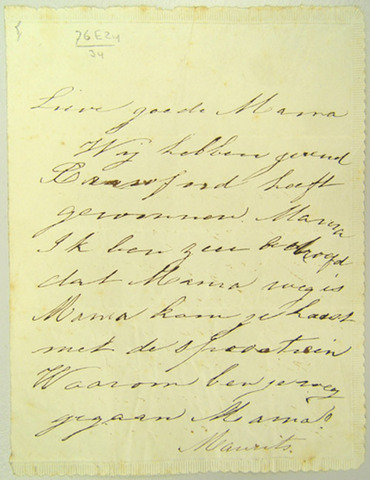 76 E 24
34
Lieve goede Mama
Wij hebben
heeft
gewonnen. Mama
Ik ben zeer bedroefd
dat Mama weg is
Mama kom je haast
met de spoortrein
Waarom ben je weg
gegaan Mama?
Maurits.